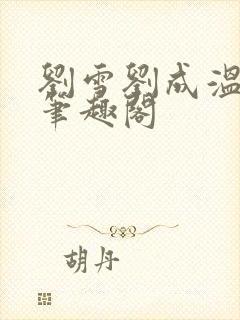 劉雪劉成溫
筆趣閣
胡丹